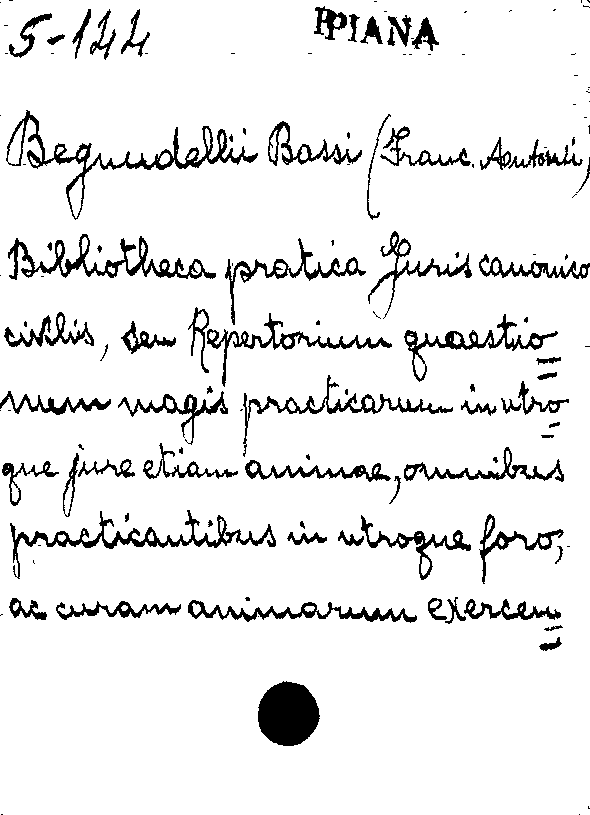 5-144
PIANA
Begnudellii Bassi (Franc. Antonii)
Bibliotheca pratica Juris canonico
civilis, seu Repertorium quaestio=
num magis practicarum in utro=
que jure etiam animae, omnibus
practicantibus in utroque foro,
ac curam animarum exercen=